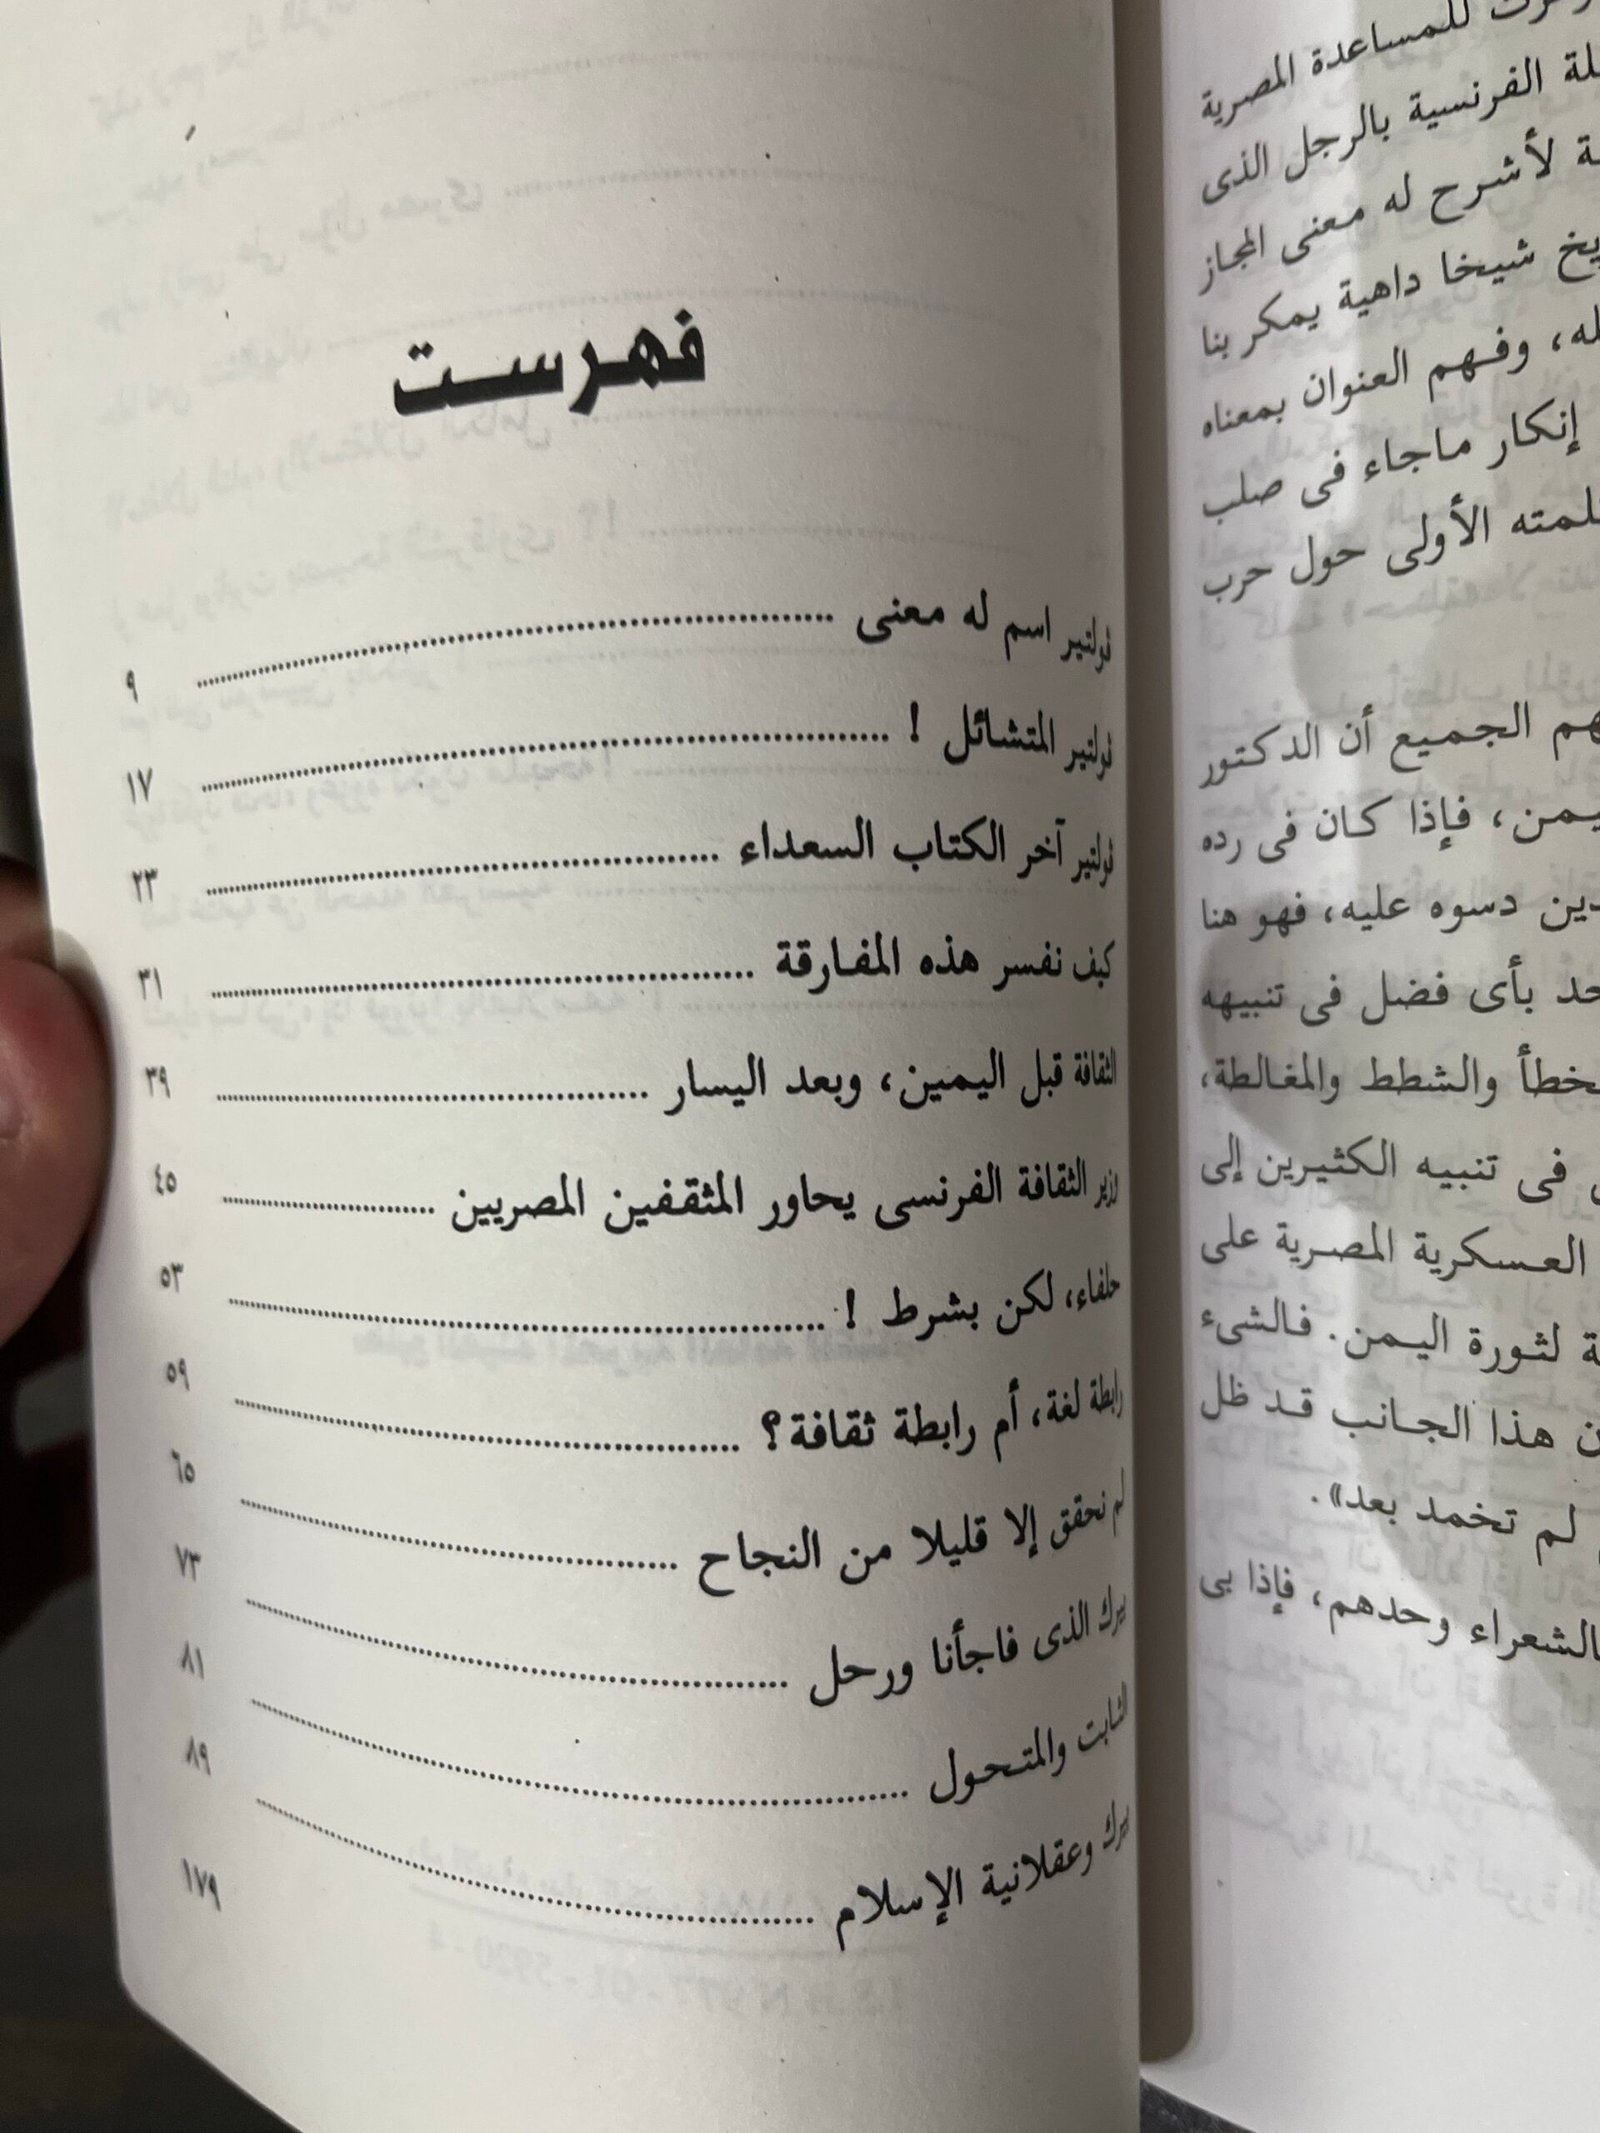 فهرست
ڤولتير اسم له معنى ................ ٩
ڤولتير المتشائل ! ................ ١٧
ڤولتير آخر الكتاب السعداء ................ ٢٣
كيف نفسر هذه المفارقة ................ ٣١
الثقافة قبل اليمين، وبعد اليسار ................ ٣٩
وزير الثقافة الفرنسى يحاور المثقفين المصريين ................ ٤٥
حلفاء، لكن بشرط ! ................ ٥٣
رابطة لغة، أم رابطة ثقافة؟ ................ ٥٩
لم نحقق إلا قليلا من النجاح ................ ٦٥
بيرك الذى فاجأنا ورحل ................ ٧٣
الثابت والمتحول ................ ٨١
بيرك وعقلانية الإسلام ................ ٨٩
١٧٩
للمساعدة المصرية
الفرنسية بالرجل الذى
لأشرح له معنى المجاز
شيخا داهية يمكر بنا
وفهم العنوان بمعناه
إنكار ماجاء فى صلب
الأولى حول حرب
الجميع أن الدكتور
فإذا كان فى رده
دسوه عليه، فهو هنا
بأى فضل فى تنبيهه
والشطط والمغالطة،
فى تنبيه الكثيرين إلى
العسكرية المصرية على
لثورة اليمن. فالشىء
هذا الجانب قد ظل
لم تخمد بعد».
وحدهم، فإذا بى